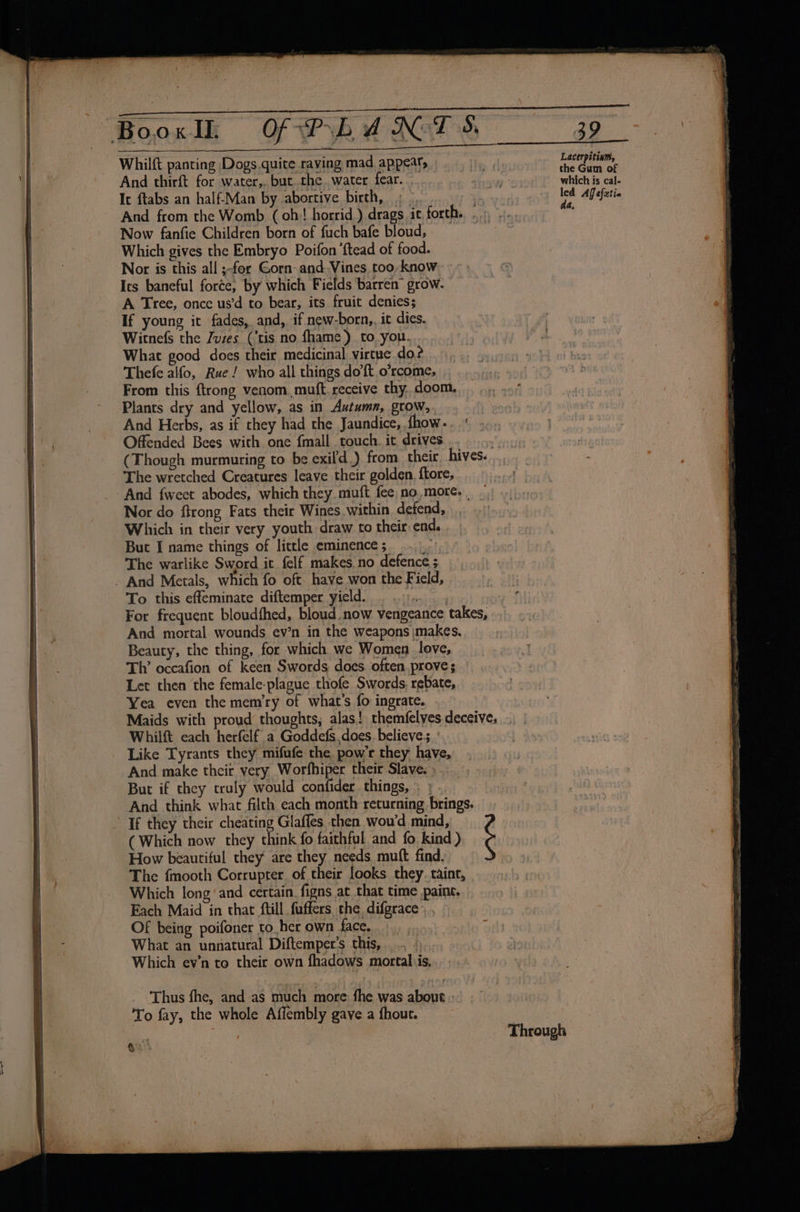 Book II. Of PLANTS. 39
Whilſt panting Dogs quite raving mad appear,
And thirſt for water, but the water fear.
It ſtabs an half-Man by abortive birth,
And from the Womb (oh! horrid) drags it forth.
Now fanſie Children born of ſuch baſe bloud,
Which gives the Embryo Poiſon 'ſtead of food.
Nor is this all; for Corn and Vines too know
Its baneful force, by which Fields barren grow.
A Tree, once us'd to bear, its fruit denies;
If young it fades, and, if new-born, it dies.
Witneſs the Ivies ('tis no ſhame) to you,
What good does their medicinal virtue do?
Theſe alſo, Rue! who all things do'ſt o'rcome,
From this ſtrong venom muſt receive thy doom.
Plants dry and yellow, as in Autumn, grow,
And Herbs, as if they had the Jaundice, ſhow.
Offended Bees with one ſmall touch it drives
(Though murmuring to be exil'd) from their hives.
The wretched Creatures leave their golden ſtore,
And ſweet abodes, which they muſt ſee no more.
Nor do ſtrong Fats their Wines within defend,
Which in their very youth draw to their end.
But I name things of little eminence;
The warlike Sword it ſelf makes no defence;
And Metals, which ſo oft have won the Field,
To this effeminate diſtemper yield.
For frequent bloudſhed, bloud now vengeance takes,
And mortal wounds ev'n in the weapons makes.
Beauty, the thing, for which we Women love,
Th' occaſion of keen Swords does often prove;
Let then the female plague thoſe Swords rebate,
Yea even the mem'ry of what's ſo ingrate.
Maids with proud thoughts, alas! themſelves deceive,
Whilſt each herſelf a Goddeſs does believe;
Like Tyrants they miſuſe the pow'r they have,
And make their very Worſhiper their Slave.
But if they truly would conſider things,
And think what filth each month returning brings.
If they their cheating Glaſſes then wou'd mind,
(Which now they think ſo faithful and ſo kind)
How beautiful they are they needs muſt find.
The ſmooth Corrupter of their looks they taint,
Which long and certain ſigns at that time paint.
Each Maid in that ſtill ſuffers the diſgrace
Of being poiſoner to her own face.
What an unnatural Diſtemper's this,
Which ev'n to their own ſhadows mortal is.
Thus ſhe, and as much more ſhe was about
To ſay, the whole Aſſembly gave a ſhout.
Through
Lacerpitium,
the Gum of
which is cal-
led Aſſefœti-
da,